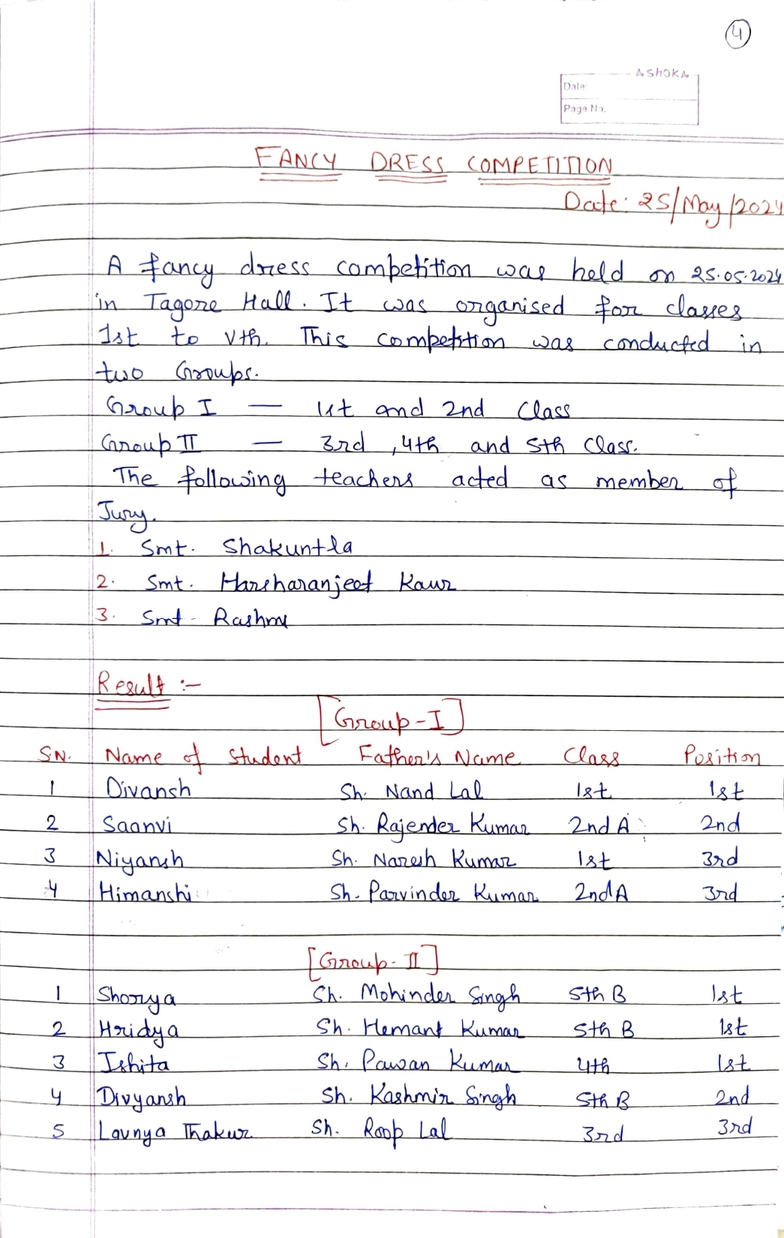 4
ASHOKA
Date
Page No.
FANCY DRESS COMPETITION
Date: 25/May/2024
A fancy dress competition was held on 25.05.2024
in Tagore Hall. It was organised for classes
1st to Vth. This competition was conducted in
two Groups.
Group I — 1st and 2nd Class
Group II — 3rd, 4th and 5th Class.
The following teachers acted as member of
Jury.
1. Smt. Shakuntla
2. Smt. Harsharanjeet Kaur
3. Smt - Rashmi
Result :-
[Group-I]
S.N. Name of Student Father's Name Class Position
1 Divansh Sh. Nand Lal 1st 1st
2 Saanvi Sh. Rajender Kumar 2nd A 2nd
3 Niyansh Sh. Naresh Kumar 1st 3rd
4 Himanshi Sh. Parvinder Kumar 2nd A 3rd
[Group-II]
1 Shorya Sh. Mohinder Singh 5th B 1st
2 Hridya Sh. Hemant Kumar 5th B 1st
3 Ishita Sh. Pawan Kumar 4th 1st
4 Divyansh Sh. Kashmir Singh 5th B 2nd
5 Lavnya Thakur Sh. Roop Lal 3rd 3rd